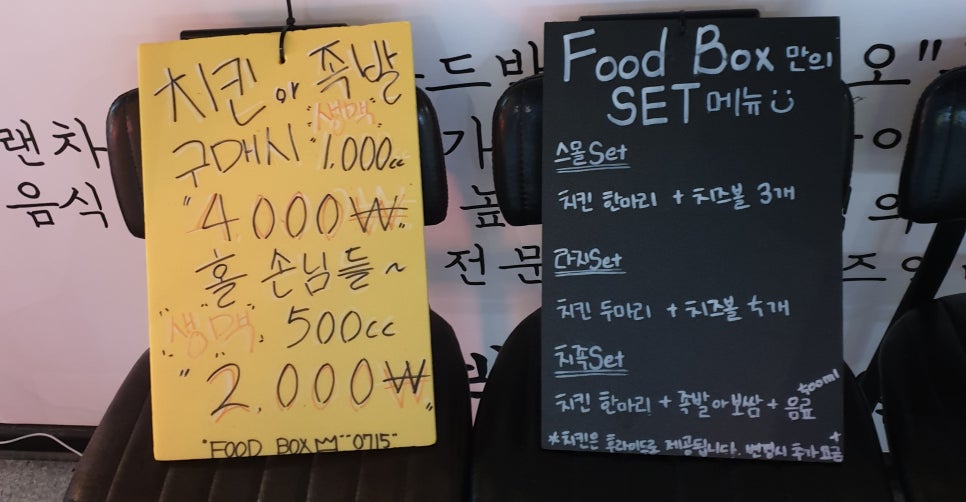 치킨 or 족발
생맥
구매시 "1.000cc
"4.000₩"
홀 손님들~
"생맥" 500cc
"2.000₩"
"FOOD BOX" "0715"
Food Box 만의
SET 메뉴
스몰Set
치킨 한마리 + 치즈볼 3개
라지Set
치킨 두마리 + 치즈볼 5개
치족Set
500ml
치킨 한마리 + 족발 or 보쌈 + 음료
*치킨은 후라이드로 제공됩니다. 변경시 추가요금
랜차
음식
드바
오"
가
높
전문
즈